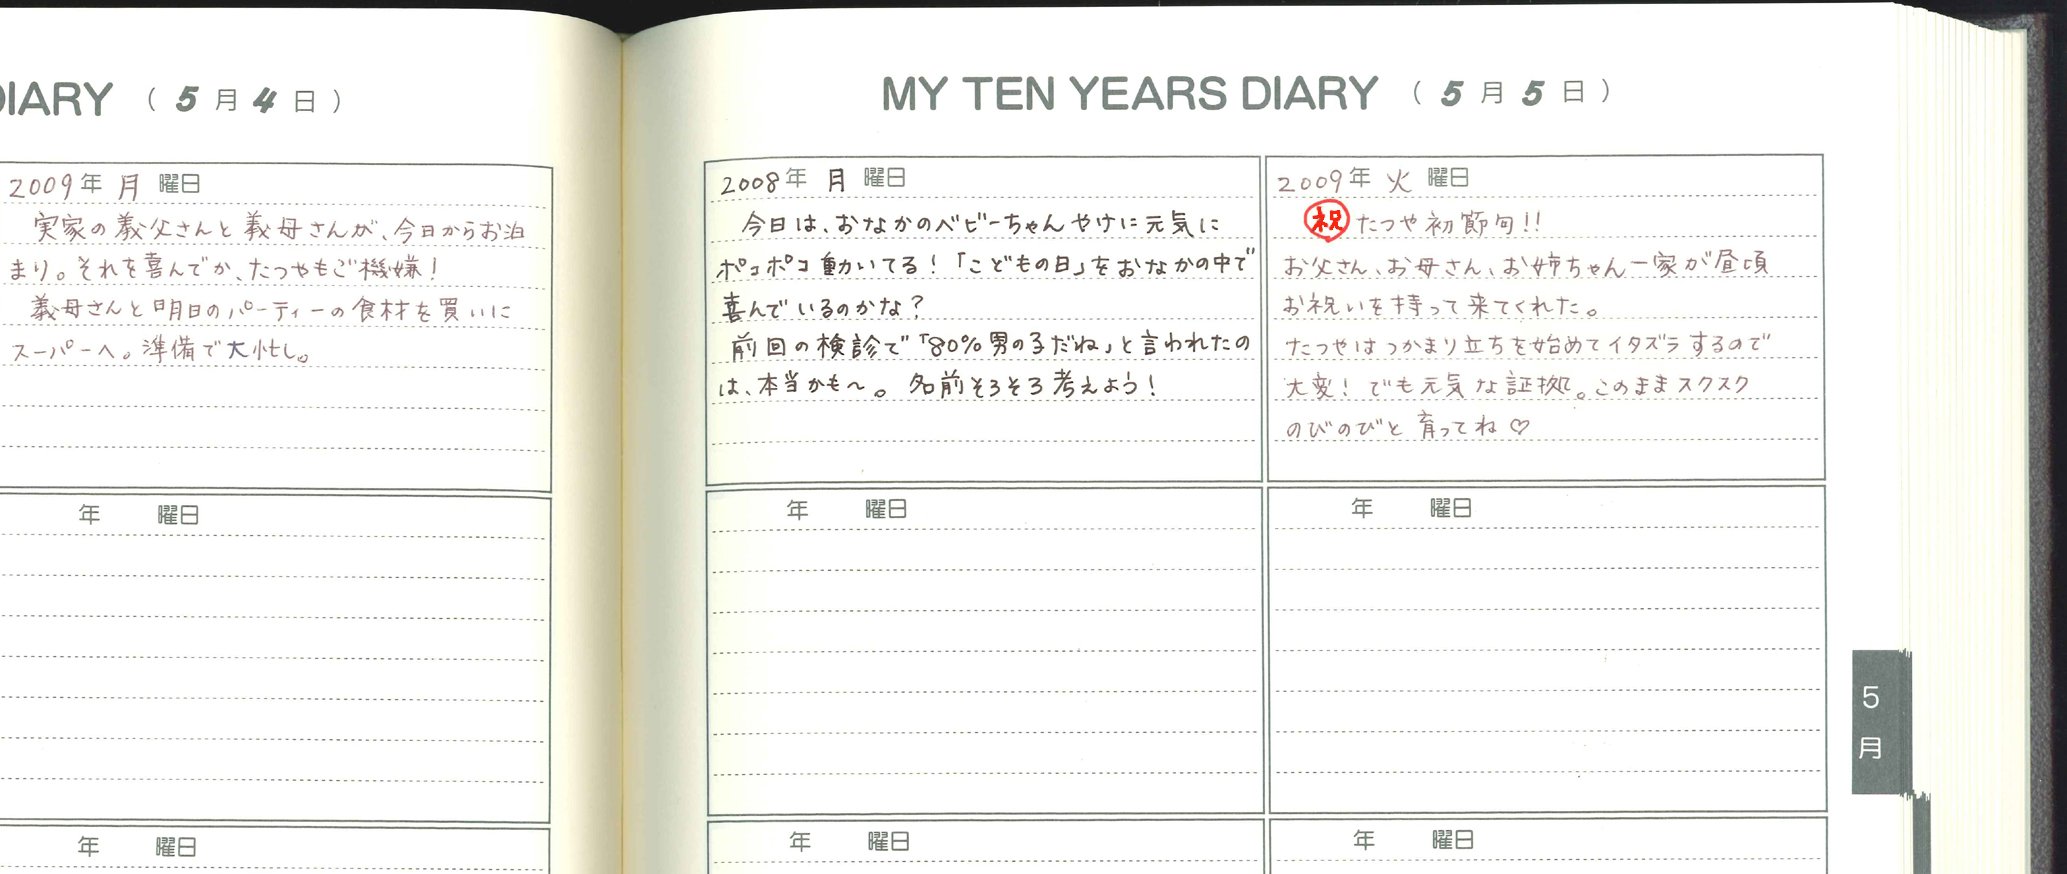 DIARY (5月4日)
2009年 月 曜日
実家の義父さんと義母さんが、今日からお泊
まり。それを喜んでか、たつやもご機嫌!
義母さんと明日のパーティーの食材を買いに
スーパーへ。準備で大忙し。
年 曜日
年 曜日
MY TEN YEARS DIARY (5月5日)
2008年 月 曜日
今日は、おなかのベビーちゃんやけに元気に
ポコポコ動いてる!「こどもの日」をおなかの中で
喜んでいるのかな?
前回の検診で「80%男の子だね」と言われたの
は、本当かも〜。名前そろそろ考えよう!
2009年 火 曜日
祝 たつや初節句!!
お父さん、お母さん、お姉ちゃん一家が昼頃
お祝いを持って来てくれた。
たつやはつかまり立ちを始めてイタズラするので
大変!でも元気な証拠。このままスクスク
のびのびと育ってね♡
年 曜日
年 曜日
年 曜日
年 曜日
5
月